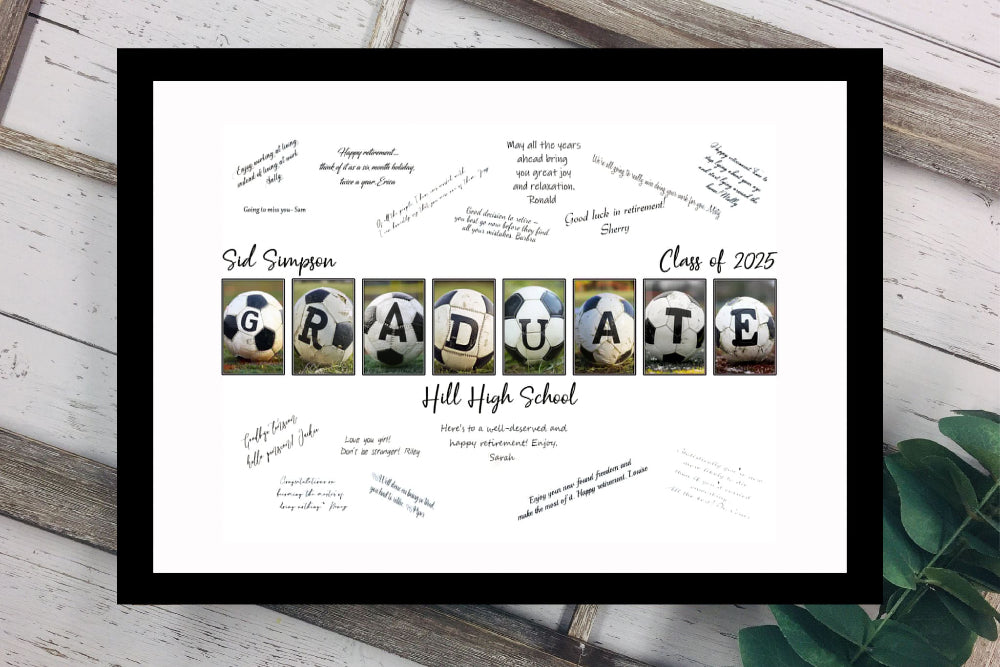 Enjoy working at living,
instead of living at work
Sally.
Happy retirement...
think of it as a six month holiday,
twice a year. Erica
May all the years
ahead bring
you great joy
and relaxation.
Ronald
We're all going to really miss doing your work for you.
Happy retirement Sam to
stop lying about your age
and start lying around the
house
Going to miss you - Sam
of all the people I have ever
Good decision to retire –
you best go now before they find
all your mistakes. Barbra
Good luck in retirement!
Sherry
Sid Simpson
Class of 2025
G R A D U A T E
Hill High School
Goodbye tension
hello pension! Jackie
Love you girl!
Don't be stranger! Riley
Here's to a well-deserved and
happy retirement! Enjoy,
Sarah
Congratulations on
becoming the master of
doing nothing."
Enjoy your new found freedom and
make the most of it. Happy retirement. Louise